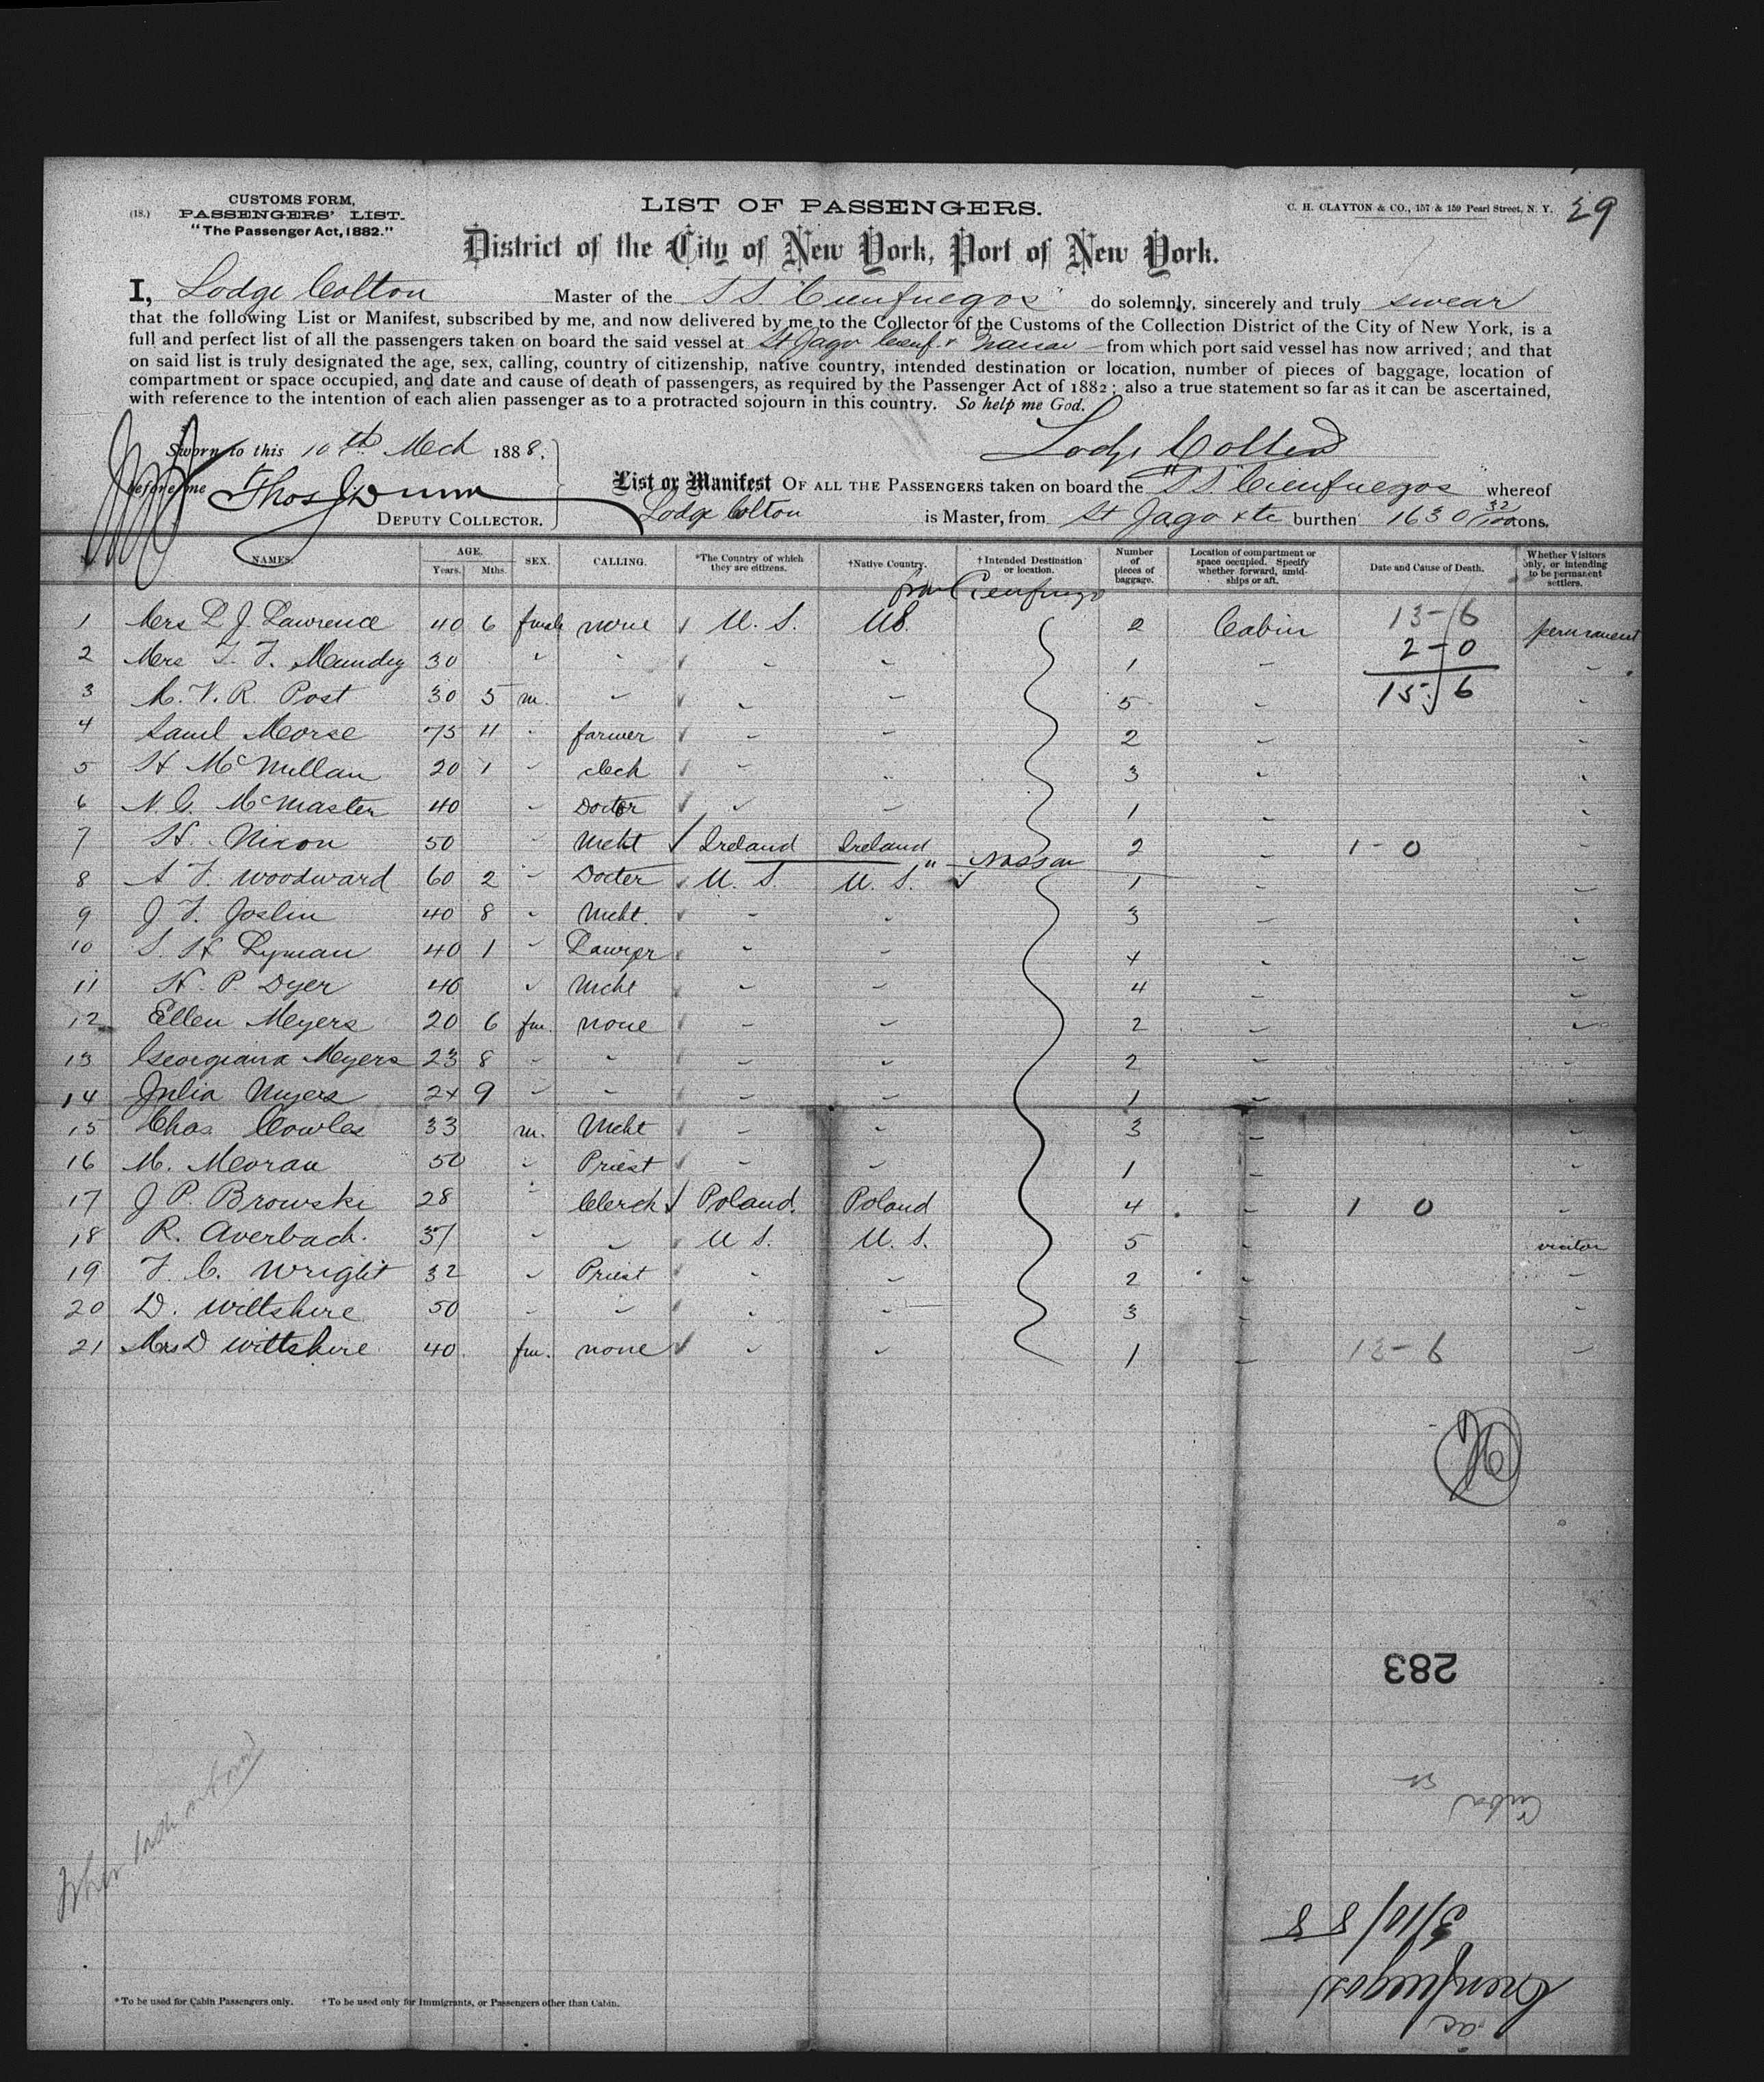 CUSTOMS FORM,
(18.) PASSENGERS' LIST.
"The Passenger Act, 1882."
LIST OF PASSENGERS.
C. H. CLAYTON & CO., 157 & 159 Pearl Street, N. Y. 29
District of the City of New York, Port of New York.
I, Lodge Colton Master of the SS. Cienfuegos do solemnly, sincerely and truly swear
that the following List or Manifest, subscribed by me, and now delivered by me to the Collector of the Customs of the Collection District of the City of New York, is a
full and perfect list of all the passengers taken on board the said vessel at St Jago Cienf. & Nassau from which port said vessel has now arrived; and that
on said list is truly designated the age, sex, calling, country of citizenship, native country, intended destination or location, number of pieces of baggage, location of
compartment or space occupied, and date and cause of death of passengers, as required by the Passenger Act of 1882; also a true statement so far as it can be ascertained,
with reference to the intention of each alien passenger as to a protracted sojourn in this country. So help me God.
Lodge Colton
Sworn to this 10th Mch 1888.
before me Thos J Dunn
DEPUTY COLLECTOR.
List or Manifest OF ALL THE PASSENGERS taken on board the "SS. Cienfuegos whereof
Lodge Colton is Master, from St Jago &tc burthen 1630 32/100 tons.
NAMES. AGE. Years. Mths. SEX. CALLING. *The Country of which they are citizens. †Native Country. †Intended Destination or location. Number of pieces of baggage. Location of compartment or space occupied. Specify whether forward, amidships or aft. Date and Cause of Death. Whether Visitors only, or intending to be permanent settlers.
from Cienfuegos
1 Mrs L J Lawrence 40 6 female none √ U. S. US. 2 Cabin 13-6 permanent
2 Mrs T. F. Mundy 30 " " √ " " 1 " 2-0 "
3 M. V. R. Post 30 5 m. " √ " " 5 " 15-6 "
4 Saml Morse 75 11 " farmer √ " " 2 " "
5 H McMillan 20 1 " clerk √ " " 3 " "
6 N. G. McMaster 40 " Docter √ " " 1 " "
7 H. Nixon 50 " Mcht √ Ireland Ireland 2 " 1-0 "
" Nassau
8 A F. Woodward 60 2 " Docter √ U. S. U. S. √ 1 " "
9 J. F. Joslin 40 8 " Mcht. √ " " 3 " "
10 S. H Lyman 40 1 " Lawyer √ " " 4 " "
11 H. P. Dyer 40 " Mcht " " 4 " "
12 Ellen Meyers 20 6 fm. none √ " " 2 " "
13 Georgiana Meyers 23 8 " " √ " " 2 " "
14 Julia Myers 24 9 " " √ " " 1 " "
15 Chas Cowles 33 m. Mcht √ " " 3 " "
16 M. Moran 50 " Priest √ " " 1 " "
17 J P. Browski 28 " Clerck √ Poland. Poland 4 " 1 0 "
18 R. Averbach. 37 " " U S. U. S. 5 " visitor
19 F. C. Wright 32 " Priest √ " " 2 " "
20 D. Wiltshire 50 " " √ " " 3 " "
21 Mrs D Wiltshire 40. fm. none √ " " 1 " 13-6 "
283
Cuba
3/10/88
Cienfuegos
*To be used for Cabin Passengers only. †To be used only for Immigrants, or Passengers other than Cabin.